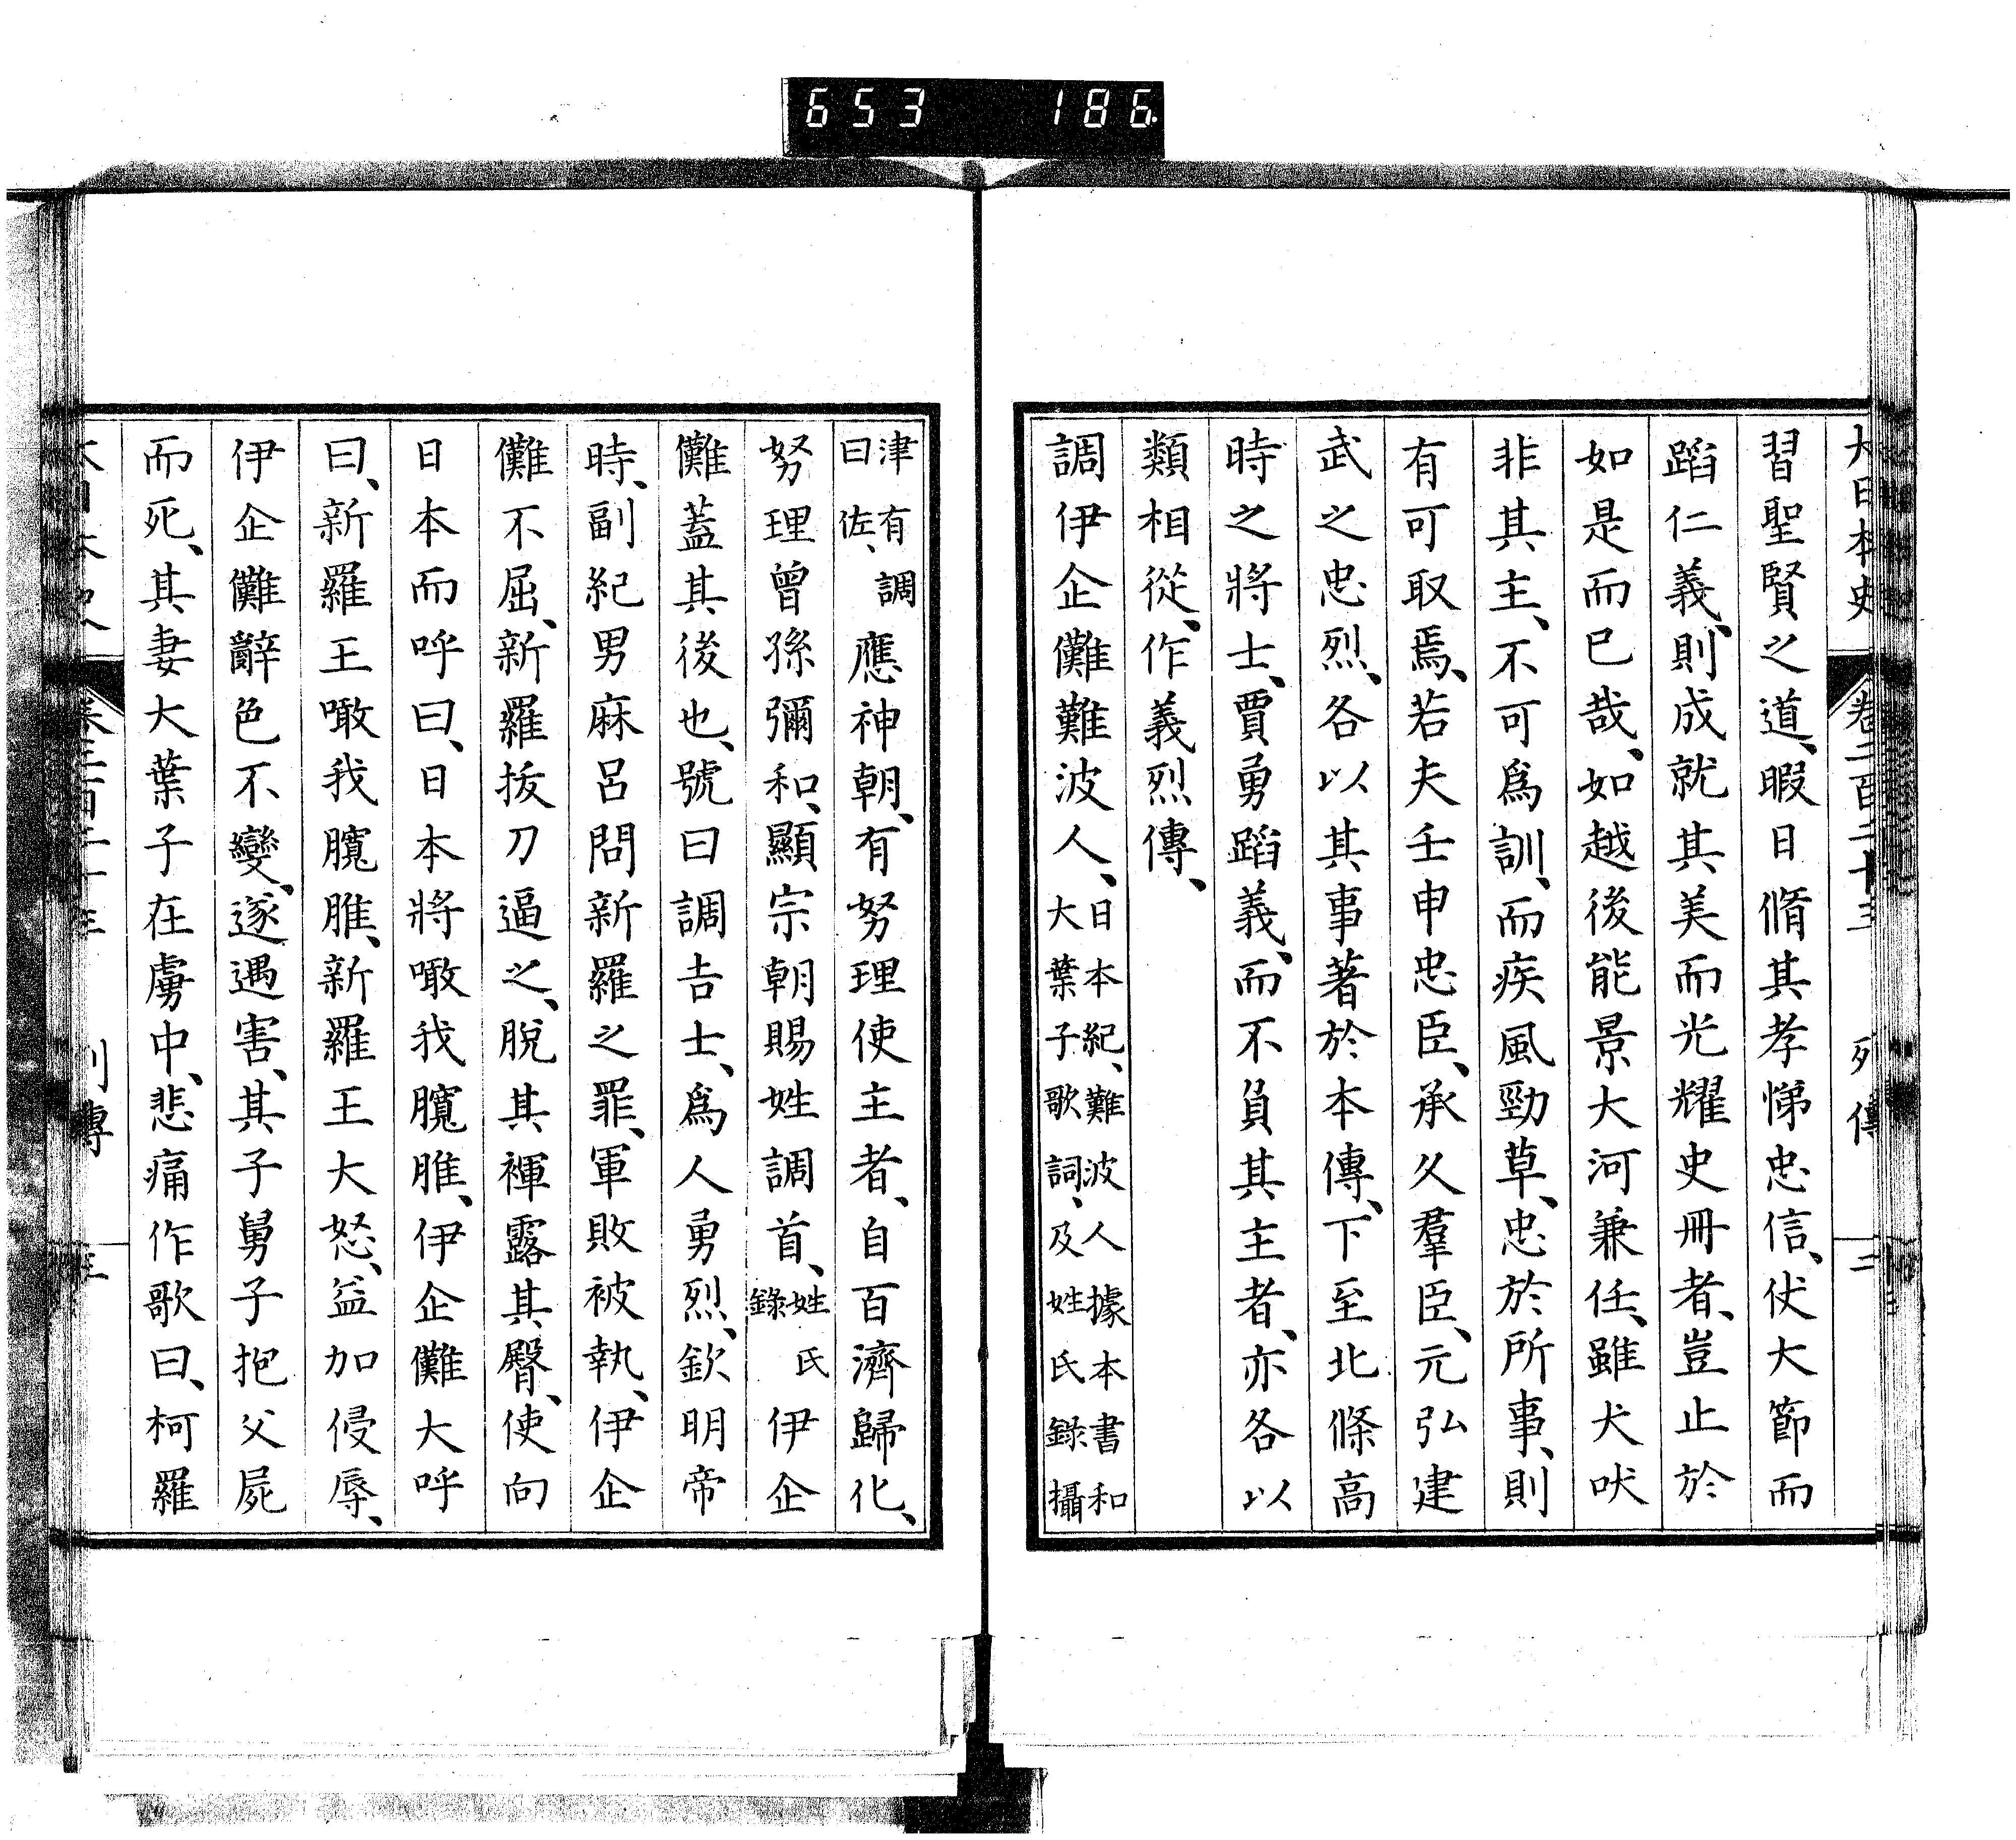 653 186
大日本史 卷二百二十三 列傳 二
習聖賢之道、暇日脩其孝悌忠信、伏大節而
蹈仁義、則成就其美而光耀史冊者、豈止於
如是而已哉、如越後能景大河兼任、雖犬吠
非其主、不可爲訓、而疾風勁草、忠於所事、則
有可取焉、若夫壬申忠臣、承久羣臣、元弘建
武之忠烈、各以其事著於本傳、下至北條高
時之將士、賈勇蹈義、而不負其主者、亦各以
類相從、作義烈傳、
調伊企儺難波人、日本紀、難波人據本書和
大葉子歌詞、及姓氏錄攝
津有調
曰佐、應神朝、有努理使主者、自百濟歸化、
努理曾孫彌和、顯宗朝賜姓調首、姓氏錄伊企
儺蓋其後也、號曰調吉士、爲人勇烈、欽明帝
時、副紀男麻呂問新羅之罪、軍敗被執、伊企
儺不屈、新羅拔刀逼之、脫其褌露其臀、使向
日本而呼曰、日本將噉我臗脽、伊企儺大呼
曰、新羅王噉我臗脽、新羅王大怒、益加侵辱、
伊企儺辭色不變、遂遇害、其子舅子抱父屍
而死、其妻大葉子在虜中、悲痛作歌曰、柯羅